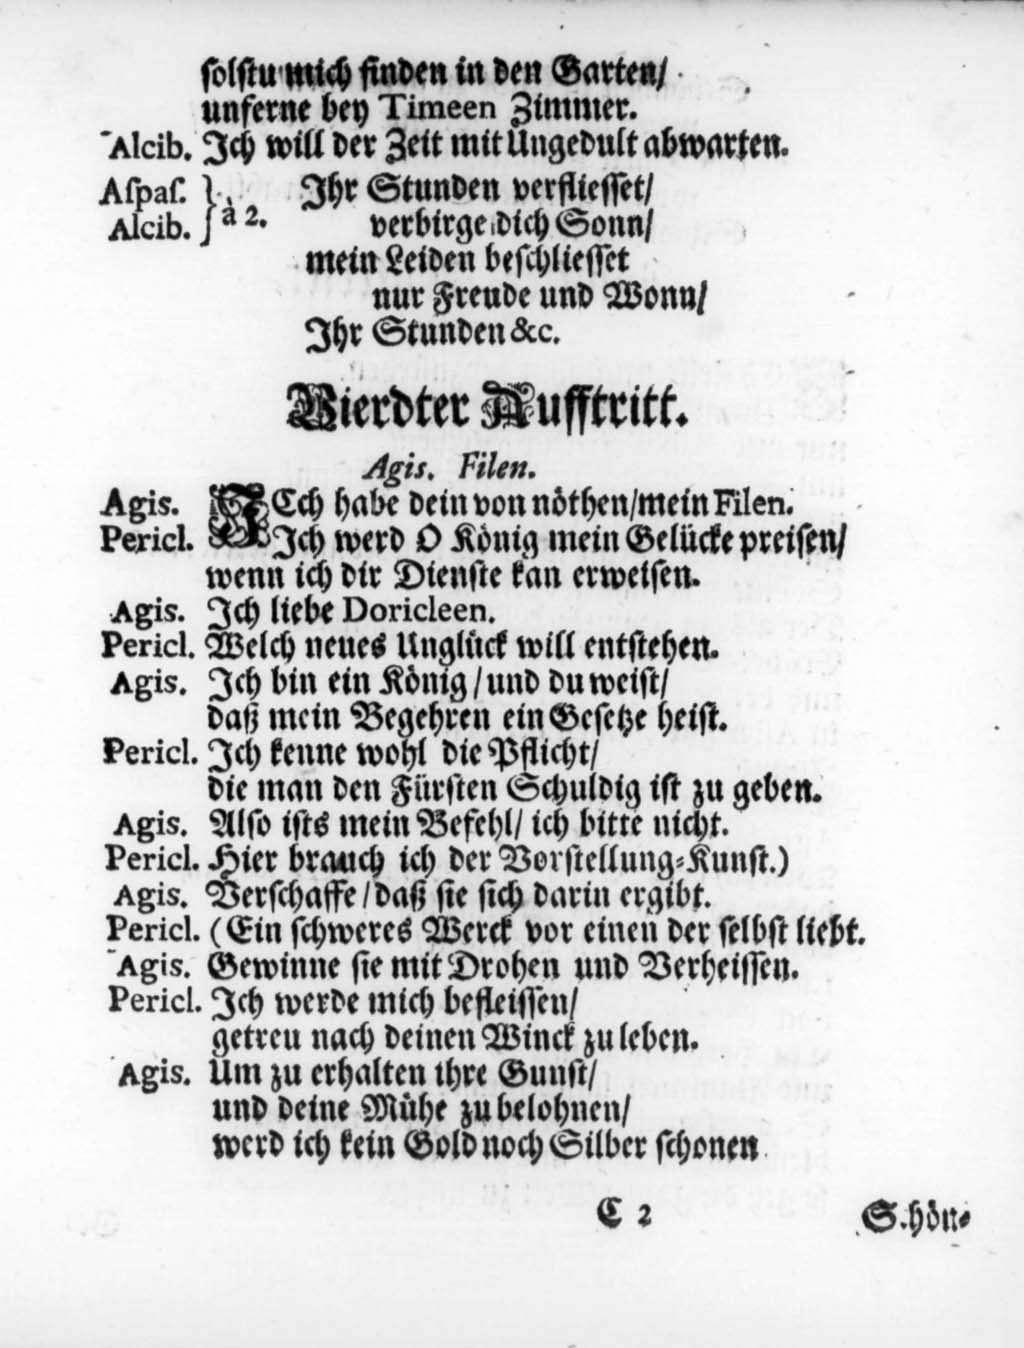 solstu mich finden in den Garten/
unferne bey Timeen Zimmer.
Alcib. Ich will der Zeit mit Ungedult abwarten.
Aſpaſ. } à 2. Ihr Stunden verfliesset/
Alcib. verbirge dich Sonn/
mein Leiden beschliesset
nur Freude und Wonn/
Ihr Stunden &c.
Vierdter Aufftritt.
Agis. Filen.
Agis. ICch habe dein von nöthen/mein Filen.
Pericl. Ich werd O König mein Gelücke preisen/
wenn ich dir Dienste kan erweisen.
Agis. Ich liebe Doricleen.
Pericl. Welch neues Unglück will entstehen.
Agis. Ich bin ein König/und du weist/
daß mein Begehren ein Gesetze heist.
Pericl. Ich kenne wohl die Pflicht/
die man den Fürsten Schuldig ist zu geben.
Agis. Also ists mein Befehl/ ich bitte nicht.
Pericl. Hier brauch ich der Vorstellung-Kunst.)
Agis. Verschaffe/daß sie sich darin ergibt.
Pericl. (Ein schweres Werck vor einen der selbst liebt.
Agis. Gewinne sie mit Drohen und Verheissen.
Pericl. Ich werde mich befleissen/
getreu nach deinen Winck zu leben.
Agis. Um zu erhalten ihre Gunst/
und deine Mühe zu belohnen/
werd ich kein Gold noch Silber schonen
C 2 S.hön-